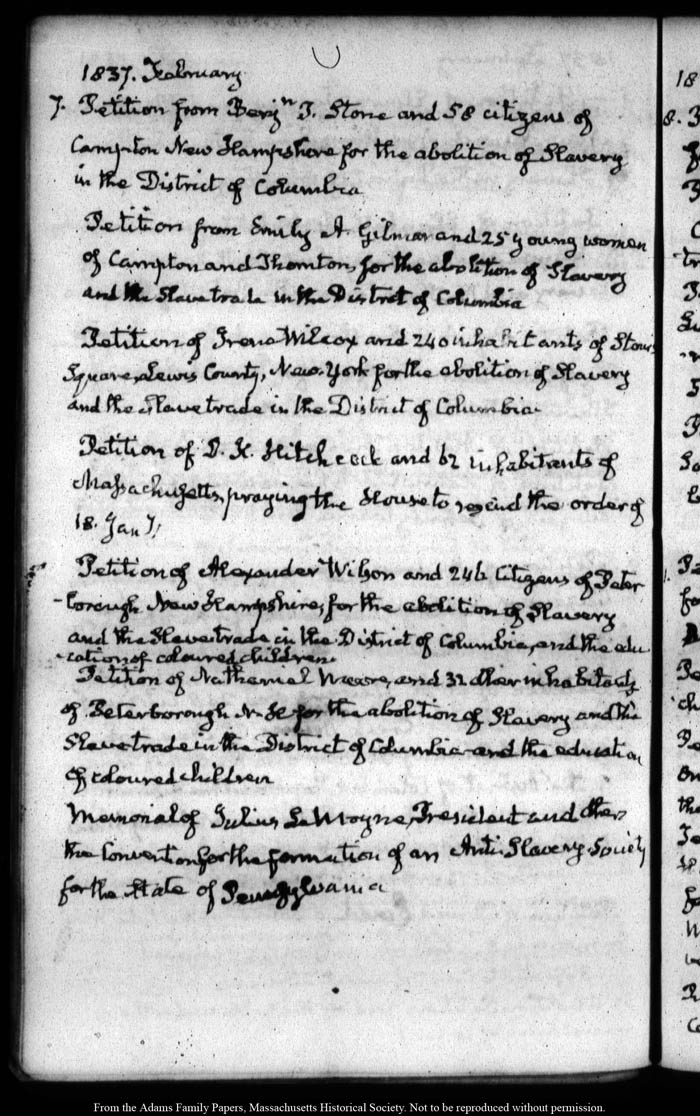 1837. February
7. Petition from Benjn T. Stone and 58 citizens of
Campton New Hampshire for the abolition of Slavery
in the District of Columbia
Petition from Emily A. Gilman and 25 young women
of Campton and Thornton, for the abolition of Slavery
and the Slave trade in the District of Columbia
Petition of Irena Wilcox and 240 inhabitants of Stows
Square, Lewis County, New-York for the abolition of Slavery
and the Slave trade in the District of Columbia.
Petition of D. K. Hitchcock and 62 inhabitants of
Massachusetts, praying the House to rescind the order of
18. Jany.
Petition of Alexander Wilson and 246 Citizens of Peter
-borough New Hampshire, for the abolition of Slavery
and the Slave trade in the District of Columbia, and the edu
-cation of coloured children.
Petition of Nathaniel Moore, and 32 other inhabitants
of Peterborough N. H. for the abolition of Slavery and the
Slave trade in the District of Columbia and the education
of coloured children
Memorial of Julius LeMoyne, President and other
the Convention for the formation of an Anti-Slavery Society
for the State of Pennsylvania
18
8.
From the Adams Family Papers, Massachusetts Historical Society. Not to be reproduced without permission.